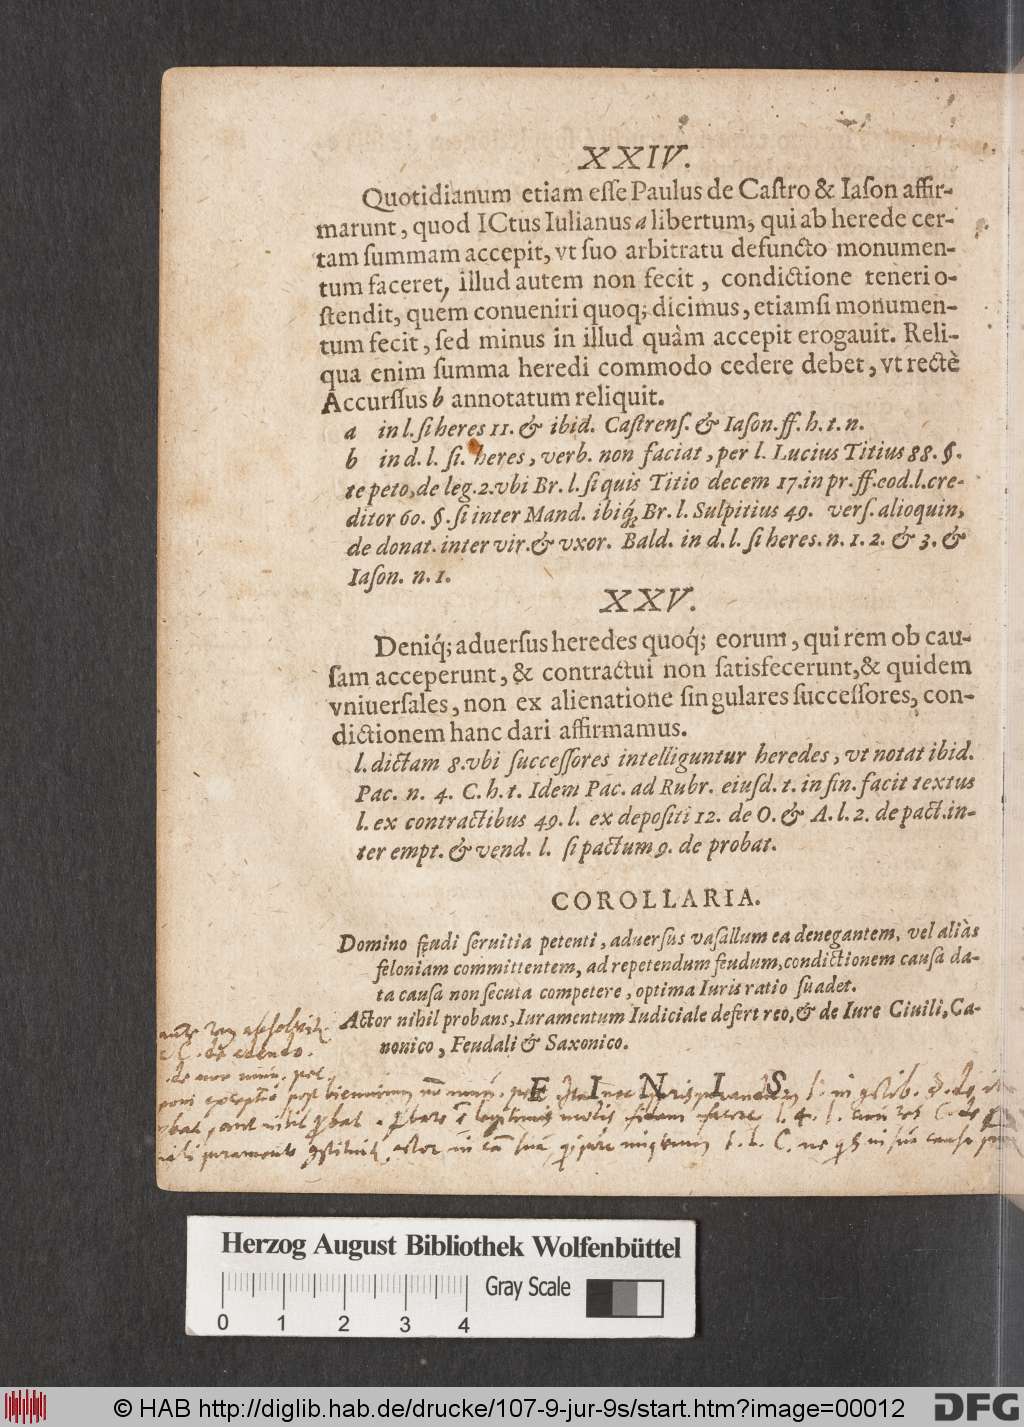 XXIV.
Quotidianum etiam eſſe Paulus de Caſtro & Iaſon affir-
marunt, quod ICtus Iulianus a libertum, qui ab herede cer-
tam ſummam accepit, vt ſuo arbitratu defuncto monumen-
tum faceret, illud autem non fecit, condictione teneri o-
ſtendit, quem conueniri quoq; dicimus, etiamſi monumen-
tum fecit, ſed minus in illud quàm accepit erogauit. Reli-
qua enim ſumma heredi commodo cedere debet, vt rectè
Accurſſus b annotatum reliquit.
a in l. ſi heres 11. & ibid. Caſtrenſ. & Iaſon. ff. h. t. n.
b in d. l. ſi. heres, verb. non faciat, per l. Lucius Titius 88. §.
te peto, de leg. 2. vbi Br. l. ſi quis Titio decem 17. in pr. ff. eod. l. cre-
ditor 60. §. ſi inter Mand. ibiq́; Br. l. Sulpitius 49. verſ. alioquin,
de donat. inter vir. & vxor. Bald. in d. l. ſi heres. n. 1. 2. & 3. &
Iaſon. n. 1.
XXV.
Deniq́; aduerſus heredes quoq́; eorum, qui rem ob cau-
ſam acceperunt, & contractui non ſatisfecerunt, & quidem
vniuerſales, non ex alienatione ſingulares ſucceſſores, con-
dictionem hanc dari affirmamus.
l. dictam 8. vbi ſucceſſores intelliguntur heredes, vt notat ibid.
Pac. n. 4. C. h. t. Idem Pac. ad Rubr. eiuſd. t. in fin. facit textus
l. ex contractibus 49. l. ex depoſiti 12. de O. & A. l. 2. de pact. in-
ter empt. & vend. l. ſi pactum 9. de probat.
COROLLARIA.
Domino feudi ſeruitia petenti, aduerſus vaſallum ea denegantem, vel aliàs
feloniam committentem, ad repetendum feudum, condictionem cauſa da-
ta cauſa non ſecuta competere, optima Iuris ratio ſuadet.
Actor nihil probans, Iuramentum Iudiciale defert reo, & de Iure Ciuili, Ca-
nonico, Feudali & Saxonico.
F I N I S
Herzog August Bibliothek Wolfenbüttel
Gray Scale
0 1 2 3 4
© HAB http://diglib.hab.de/drucke/107-9-jur-9s/start.htm?image=00012
DFG